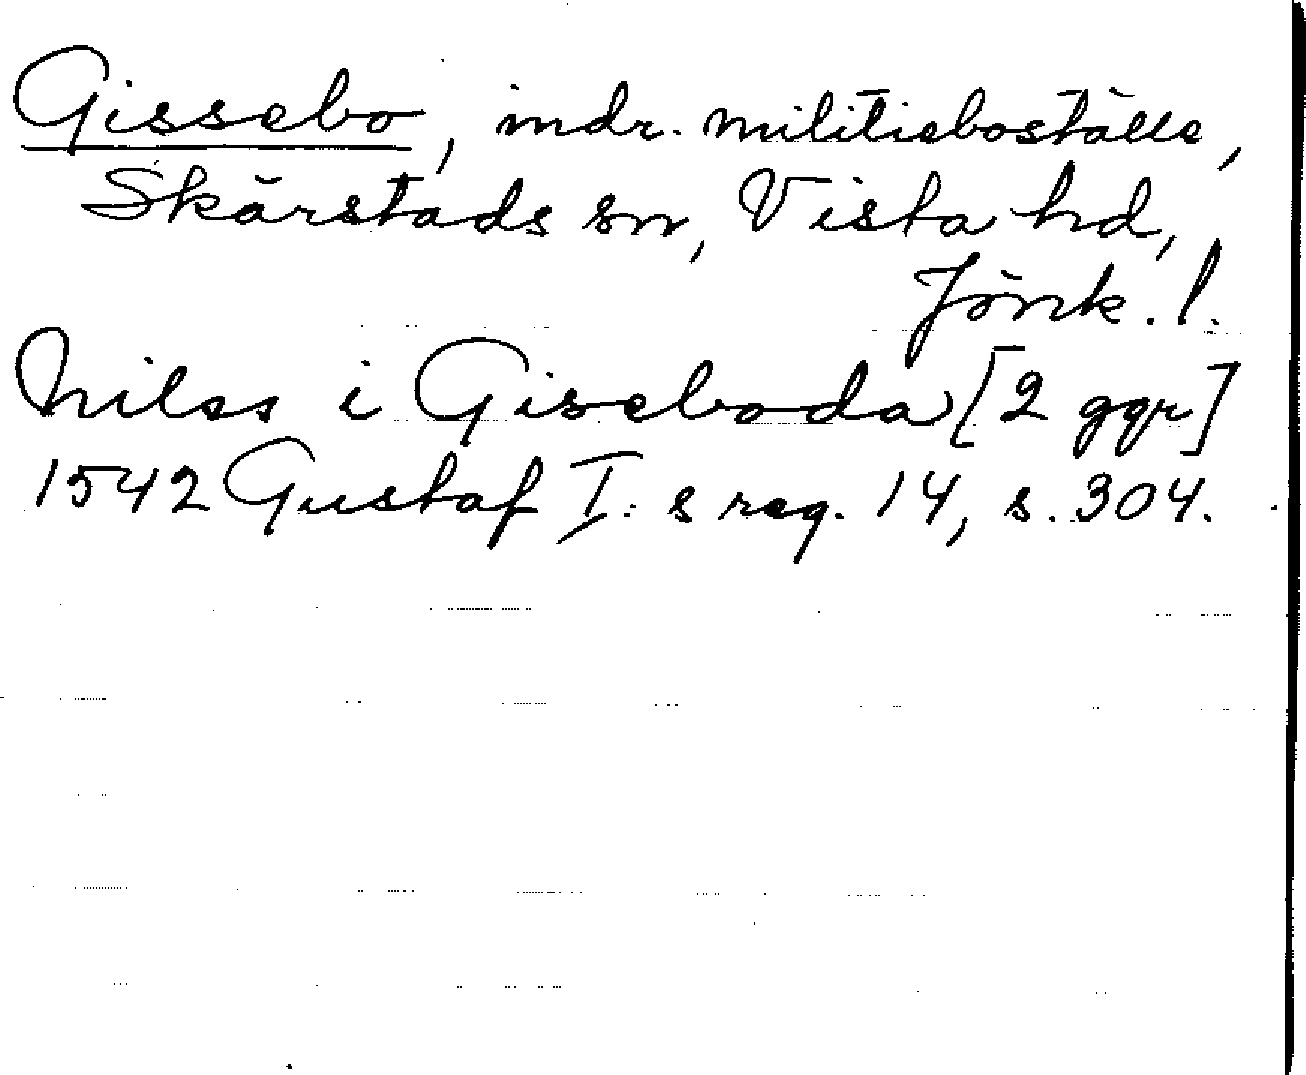 Gissebo, indr. militieboställe,
Skärstads sn, Vista hd,
Jönk. l.
Nilss i Giseboda [2 ggr]
1542 Gustaf I: s reg. 14, s. 304.